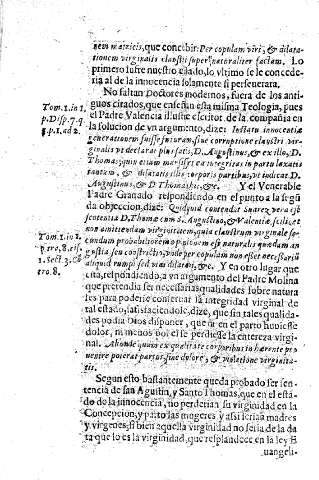 nem matricis, que concebir: Per copulam viri, & dilata-
tionem virginalis claustri supernaturaliter factam. Lo
primero lustre nuestro citado, lo vltimo se le concede-
ria al de la innocencia solamente si perseuerara.
No faltan Doctores modernos, fuera de los anti-
guos citados, que enseñan esta misma Teologia, pues
Tom. 1. in 1.
el Padre Valencia illustre escritor de la compañia en
p. Disp. 7. q.
la solucion de vn argumento, dize: In statu innocentiæ
q. p. 1. ad 2.
generationem fuisse futuram, sine corruptione claustri vir-
ginalis vt declarat D. Augustinus, & ex illo, D.
Thomas; quin etiam mansisset ea integritas in partu laxatis
tantum, & dilatatis illis corporis partibus, vt indicat D.
Augustinus, & D. Thomas hic, &c. Y el Venerable
Padre Granado respondiendo en el punto a la segũ
da objeccion, dize: Quidquid contendit Suarez vera est
sententia D. Thomæ cum S. Augustino, & Valentiæ, scilicet
non amittendam virginitatem, quia claustrum virginale se-
Tom. 1. in 1.
cundum probabiliorem opinionem est naturalis quædam an
gustia seu constrictio, vnde per copulam non esset necessariũ
1. Sect. 3.
aliquid rumpi sed vim dilatari, &c. Y en otro lugar que
ero. 8.
esta, respondiendo, a vn argumento del Padre Molina
que pretendia ser necesarias qualidades sobre natura
les para poderse conseruar la integridad virginal de
tal estado, satisfaciendole, dize, que sin tales qualida-
des podia Dios disponer, que ni en el parto huuiesse
dolor, ni menos por el se perdiesse la entereza virgi-
nal. Aliunde quam ex qualitate corporibus inhærente pro
uenire poterat partus sine dolore, & violatione virginita-
tis.
Segun esto bastantemente queda probado ser sen-
tencia de san Agustin, y Santo Thomas, que en el esta-
do de la innocencia, no perderian su virginidad en la
Concepcion, y parto las mugeres y assi serian madres
y virgenes; si bien aquella virginidad no seria de la da
ta que lo es la virginidad, que resplandece en la ley E
uangeli-